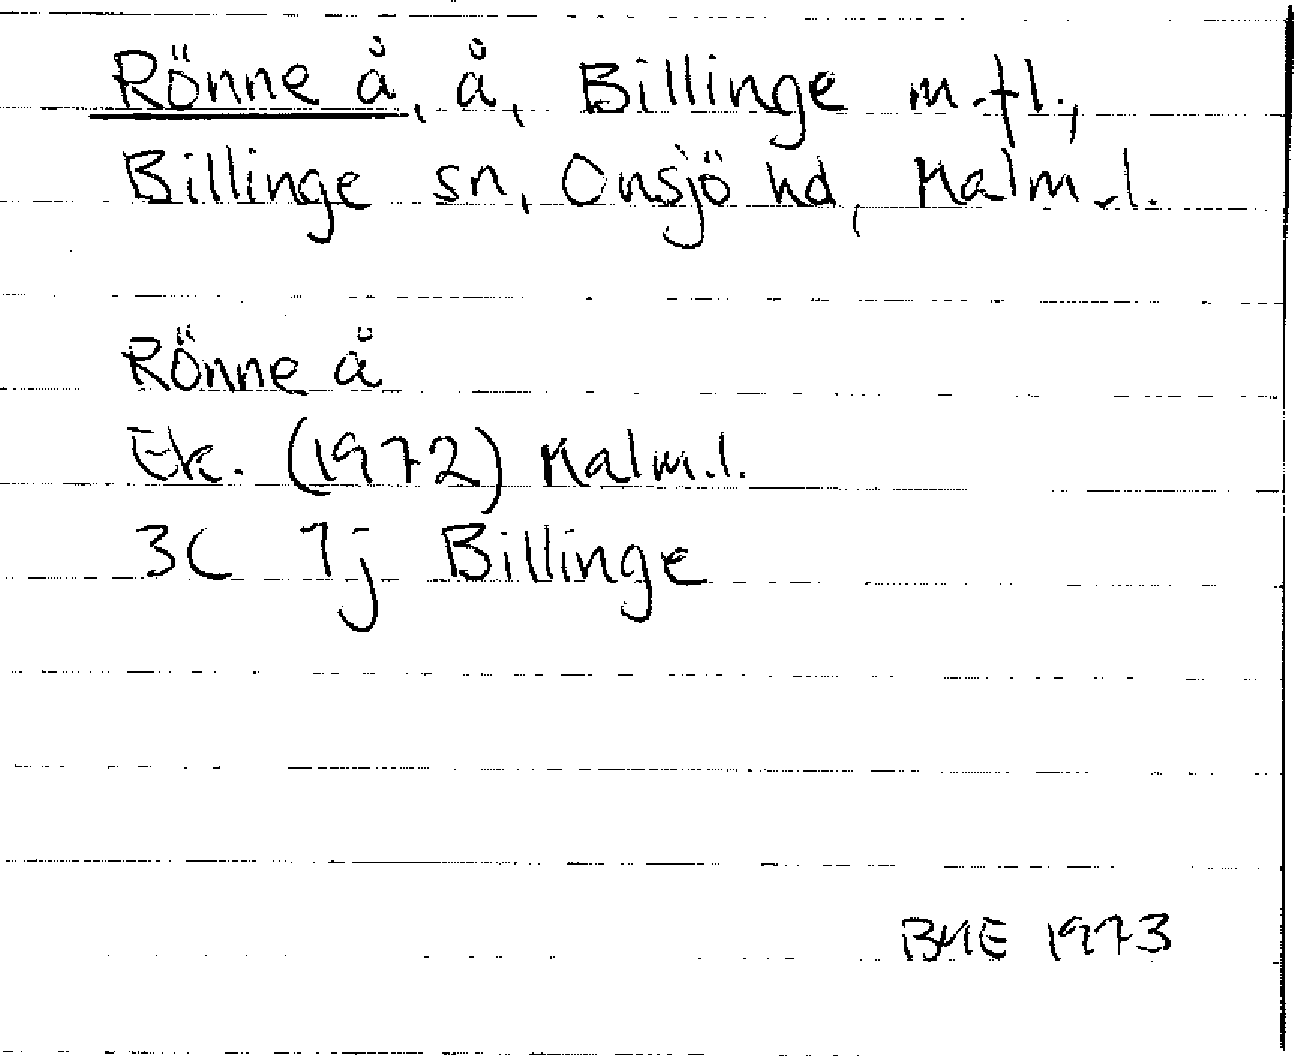 Rönne å, å, Billinge m.fl.,
Billinge sn, Onsjö hd, Malm.l.
Rönne å
Ek. (1972) Malm.l.
3C 7j Billinge
BME 1973